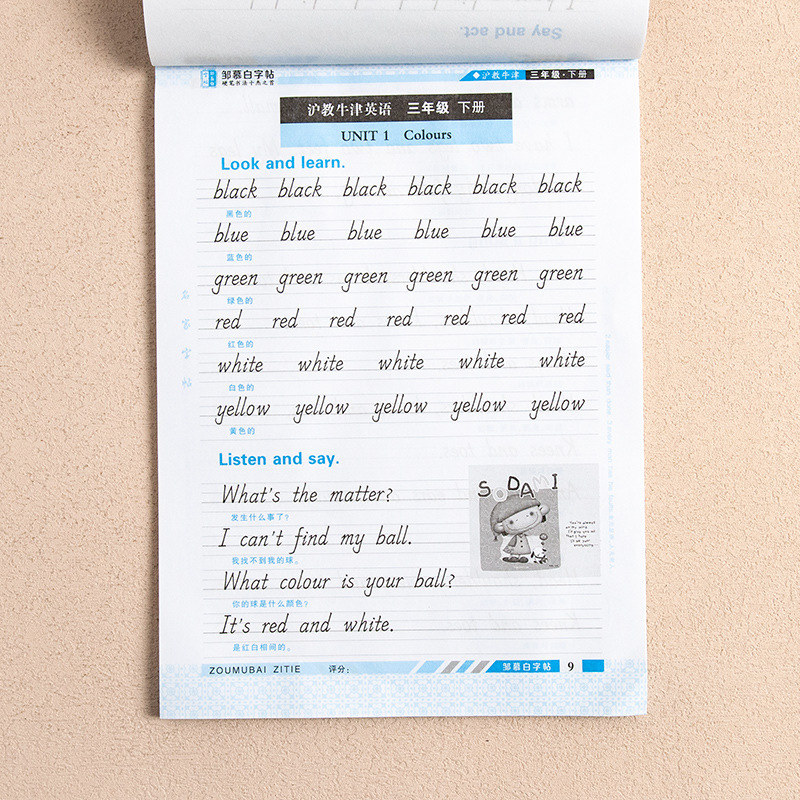 Say and act.
邹慕白字帖
硬笔书法十杰之首
◆沪教牛津 三年级·下册
沪教牛津英语 三年级 下册
UNIT 1 Colours
Look and learn.
black black black black black black
黑色的
blue blue blue blue blue blue
蓝色的
green green green green green green
绿色的
red red red red red red red
红色的
white white white white white
白色的
yellow yellow yellow yellow yellow
黄色的
名家字帖
Listen and say.
What's the matter?
发生什么事了?
I can't find my ball.
我找不到我的球。
What colour is your ball?
你的球是什么颜色?
It's red and white.
是红白相间的。
SODAMI
You're always
ZOUMUBAI ZITIE 评分:
邹慕白字帖 9